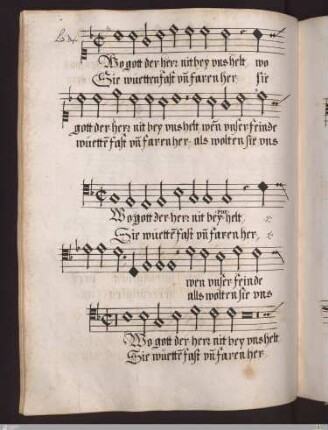 Wo gott der herr nit bey vns helt wo
Sie wuetten fast vn̄ faren her sie
gott der herr nit bey vns helt wen̄ vnser feinde
wuettē fast vn̄ faren her, als wolten sie vns
Wo gott der herr nit bey vns helt,
Sie wuettē fast vn̄ faren her,
wen vnser feinde
alls wolten sie vns
Wo gott der herr nit bey vns helt
Sie wuettē fast vn̄ faren her,